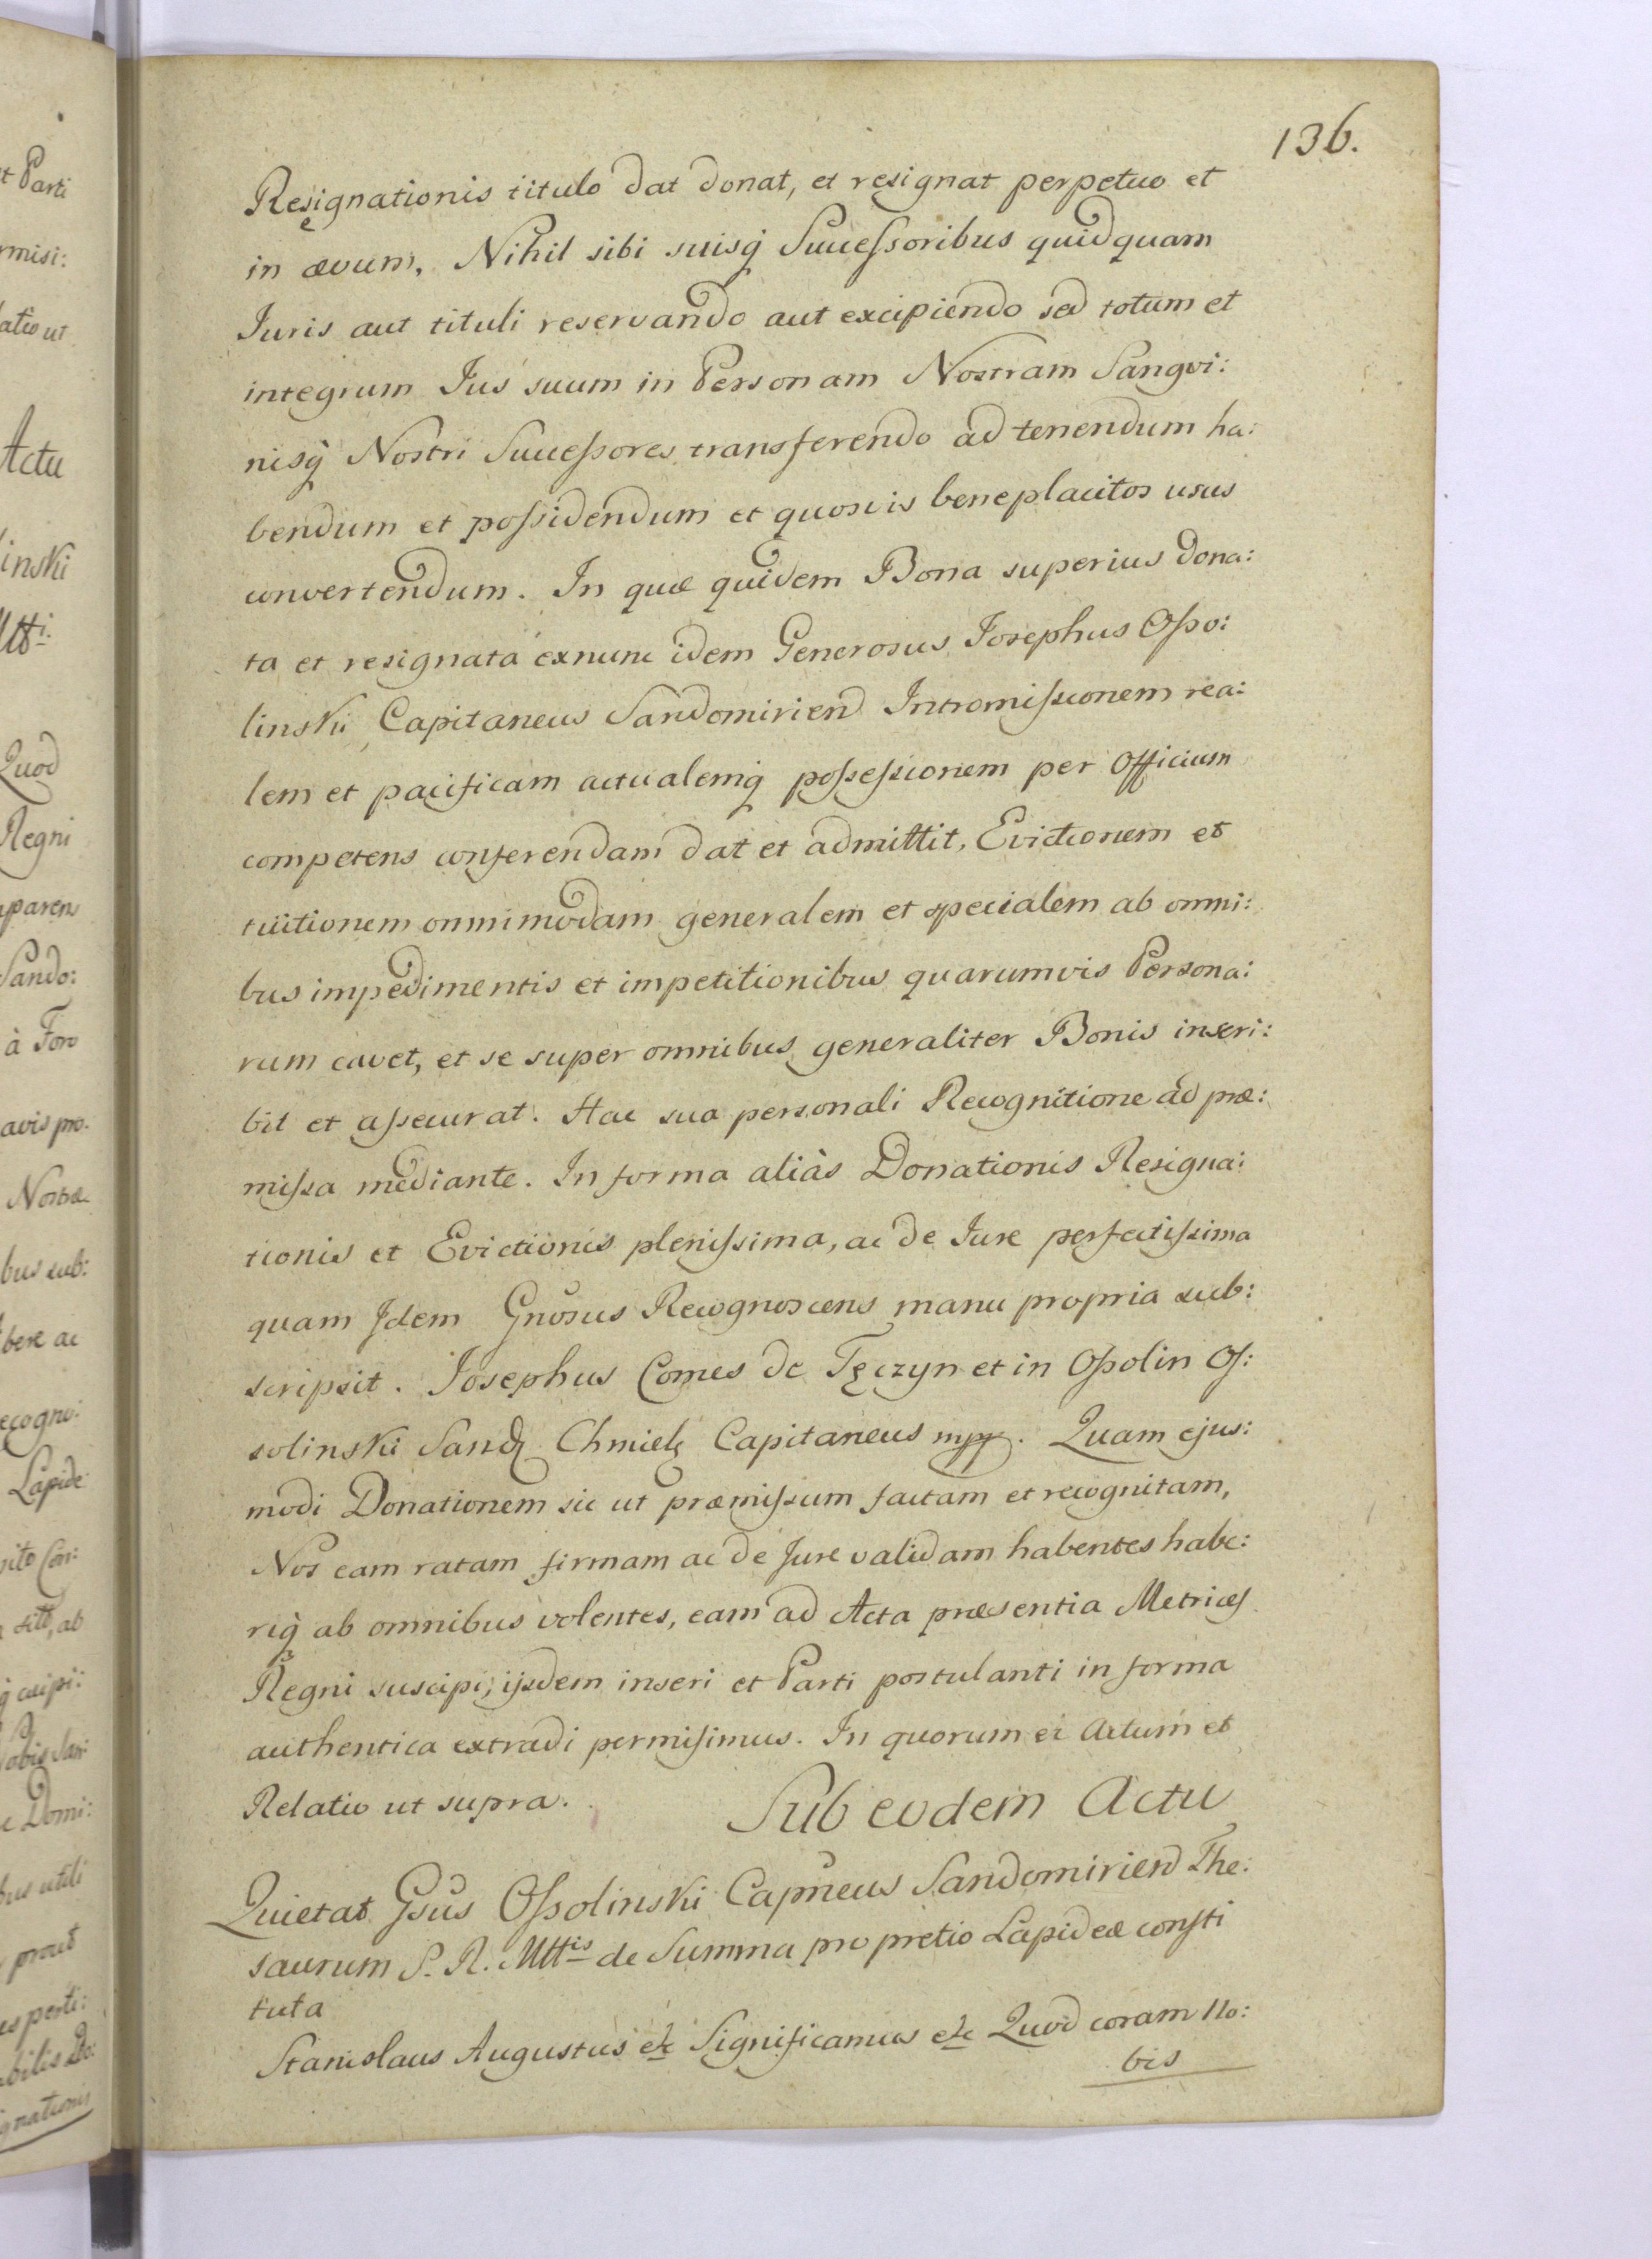 136.
Resignationis titulo dat donat, et resignat perpetuo et
in ævum, Nihil sibi suisq̃ Successoribus quidquam
Juris aut tituli reservando aut excipiendo sed totum et
integrum Jus suum in Personam Nostram Sangvi:
nisq̃ Nostri Successores transferendo ad tenendum ha:
bendum et possidendum et quosvis beneplacitos usus
convertendum. In quæ quidem Bona superius dona:
ta et resignata exnunc idem Generosus Josephus Osso:
linski Capitaneus Sandomirien̄ Intromissionem rea:
lem et pacificam actualemq̃ possessionem per Officium
competens conferendam dat et admittit, Evictionem et
tuitionem omnimodam generalem et specialem ab omni:
bus impedimentis et impetitionibus quarumvis Persona:
rum cavet, et se super omnibus generaliter Bonis inscri:
bit et assecurat. Hac sua personali Recognitione ad præ:
missa mediante. In forma aliàs Donationis Resigna:
tionis et Evictionis plenissima, ac de Jure perfectissima
quam Idem Gnosus Recognoscens manu propria sub:
scripsit. Josephus Comes de Tęczyn et in Ossolin Os:
solinski Sand. Chmiel. Capitaneus mpp. Quam ejus:
modi Donationem sic ut præmissum factam et recognitam,
Nos eam ratam firmam ac de Jure validam habentes habe:
riq̃ ab omnibus volentes, eam ad Acta præsentia Metrices
Regni suscipi, ijsdem inseri et Parti postulanti in forma
authentica extradi permisimus. In quorum ei Actum et
Relatio ut supra.
Sub eodem Actu
Quietat Gsus Ossolinski Capneus Sandomirien̄ The:
saurum S. R. Mttis de Summa pro pretio Lapideæ consti
tuta
Stanislaus Augustus etc Significamus etc Quod coram No:
bis
t Parti
rmisi:
atio ut
Actu
inski
Mtti:
Quod
Regni
paren
Sando:
à Foro
avis pro.
Nostræ
bus sub:
bere ac
ecogno:
Lapide
sito Con:
titt, ab
q̃ cuipi:
obis San:
c Domi:
bus utili
prout
es perti:
bilis Do:
gnationis